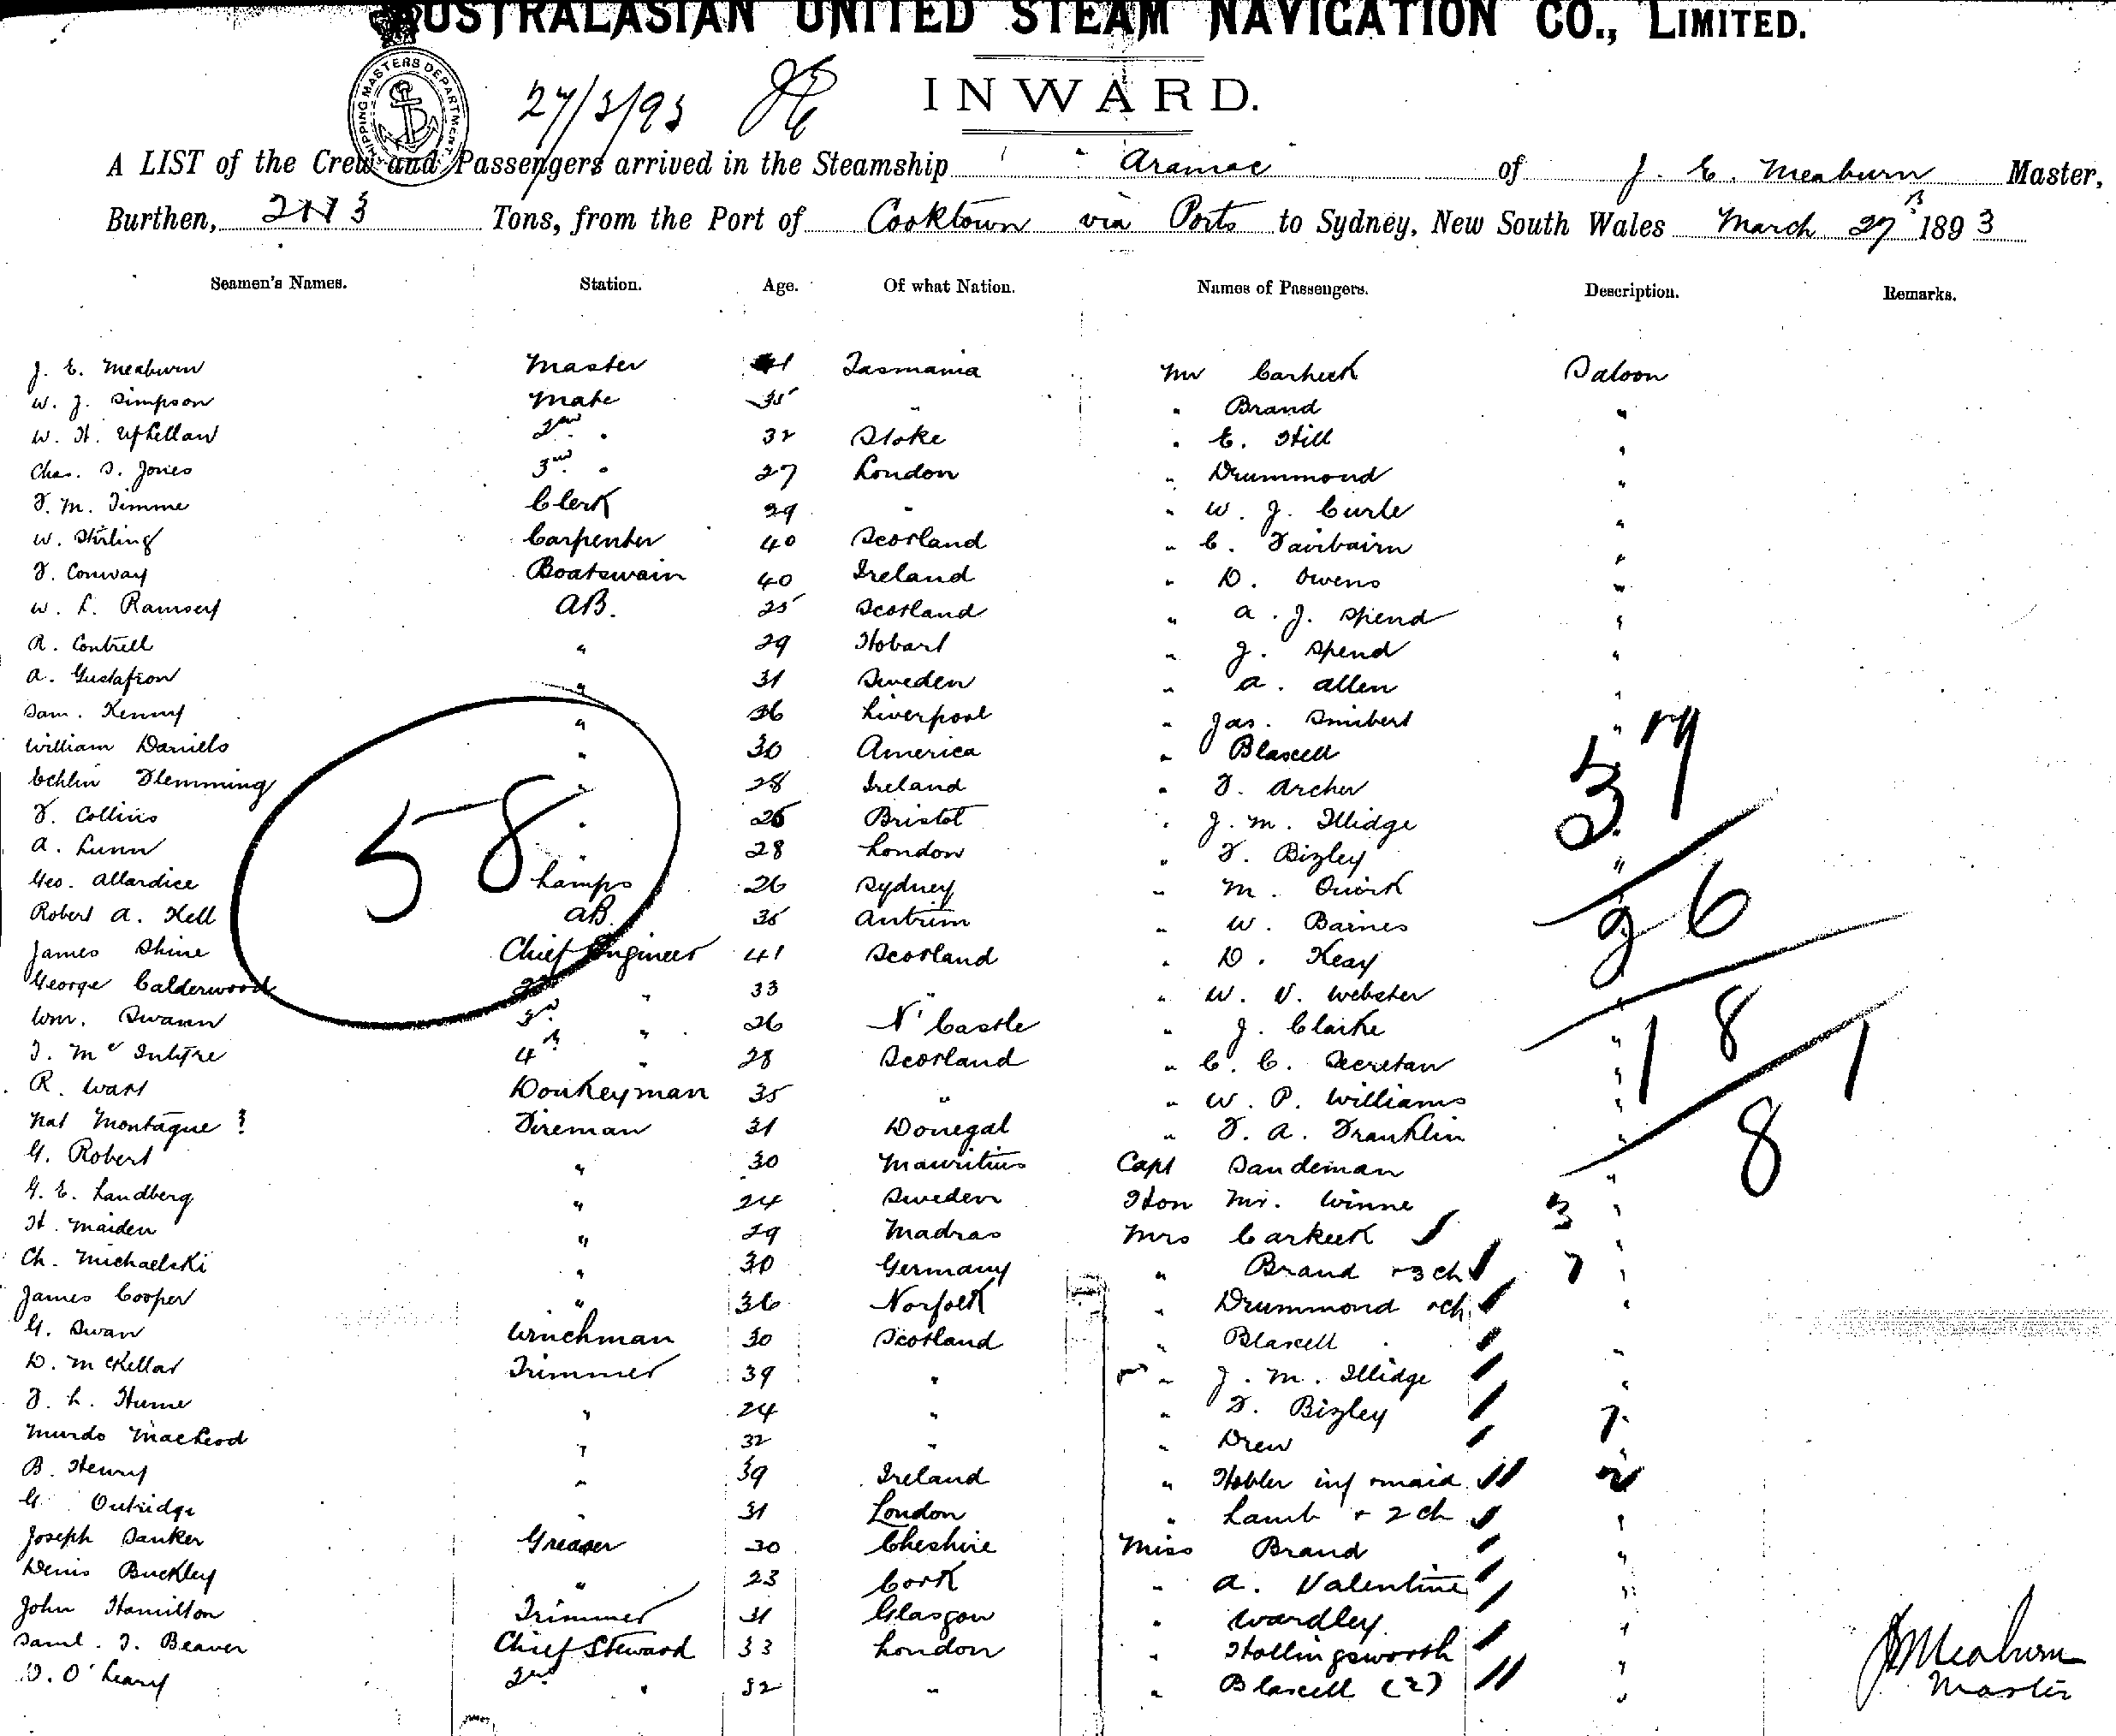 AUSTRALASIAN UNITED STEAM NAVIGATION CO., LIMITED.
SHIPPING MASTERS DEPARTMENT
27/3/93
INWARD.
A LIST of the Crew and Passengers arrived in the Steamship Aramac of J. E. Meaburn Master,
Burthen, Tons, from the Port of Cooktown via Ports to Sydney, New South Wales March 27th 1893
Seamen's Names. Station. Age. Of what Nation. Names of Passengers. Description. Remarks.
J. E. Meaburn Master 41 Tasmania Mr Carkeek Saloon
W. J. Simpson Mate 35 " " Brand "
W. H. 2nd " 32 Stoke " E. Hill "
Chas. S. Jones 3rd " 27 London " Drummond "
F. M. Timme Clerk 29 " " W. J. Curle "
W. Stirling Carpenter 40 Scotland " C. Fairbairn "
F. Conway Boatswain 40 Ireland " D. Owens "
W. L. Ramsey AB. 25 Scotland " A. J. Spend "
R. Contrell " 29 Hobart " J. Spend "
A. Gustafson " 31 Sweden " A. Allen "
Sam. Kenny " 36 Liverpool " Jas. Smibert "
William Daniels " 30 America " Blaxell
Echlin Flemming " 28 Ireland " F. Archer
F. Collins " 25 Bristol " J. M. Illidge
A. Lunn " 28 London " F. Bizley "
Geo. Allardice Lamps 26 Sydney " M. Quirk
Robert A. Kell AB. 35 Antrim " W. Baines
James Shine Chief Engineer 41 Scotland " D. Keay
George Calderwood 2nd " 33 " " W. V. Webster "
Wm. Swann 3rd " 26 N'Castle " J. Clarke "
J. McIntyre 4th " 28 Scotland " C. C. Secretan "
R. Watt Donkeyman 35 " " W. P. Williams "
Nat Montague Fireman 31 Donegal " F. A. Franklin "
G. Robert " 30 Mauritius Capt Sandeman "
G. E. Landberg " 24 Sweden Hon Mr. Winne 3 "
H. Maiden " 29 Madras Mrs Carkeek "
Ch. Michaelski " 30 Germany " Brand + 3 ch 7 "
James Cooper " 36 Norfolk " Drummond + ch "
G. Swan Winchman 30 Scotland " Blaxell "
D. McKellar Trimmer 39 " " J. M. Illidge "
F. L. Hume " 24 " " F. Bizley 7
Murdo MacLeod " 32 " " Drew
B. Henry " 39 Ireland " Hobler inf + maid
G. Outridge " 31 London " Lamb + 2 ch "
Joseph Danker Greaser 30 Cheshire Miss Brand "
Denis Buckley " 23 Cork " A. Valentine "
John Hamilton Trimmer 31 Glasgow " Wardley "
Saml. J. Beaver Chief Steward 33 London " Hollingsworth "
D. O'Leary 2nd " 32 " " Blaxell (2) "
58
57
26
18 1
8
J E Meaburn
Master